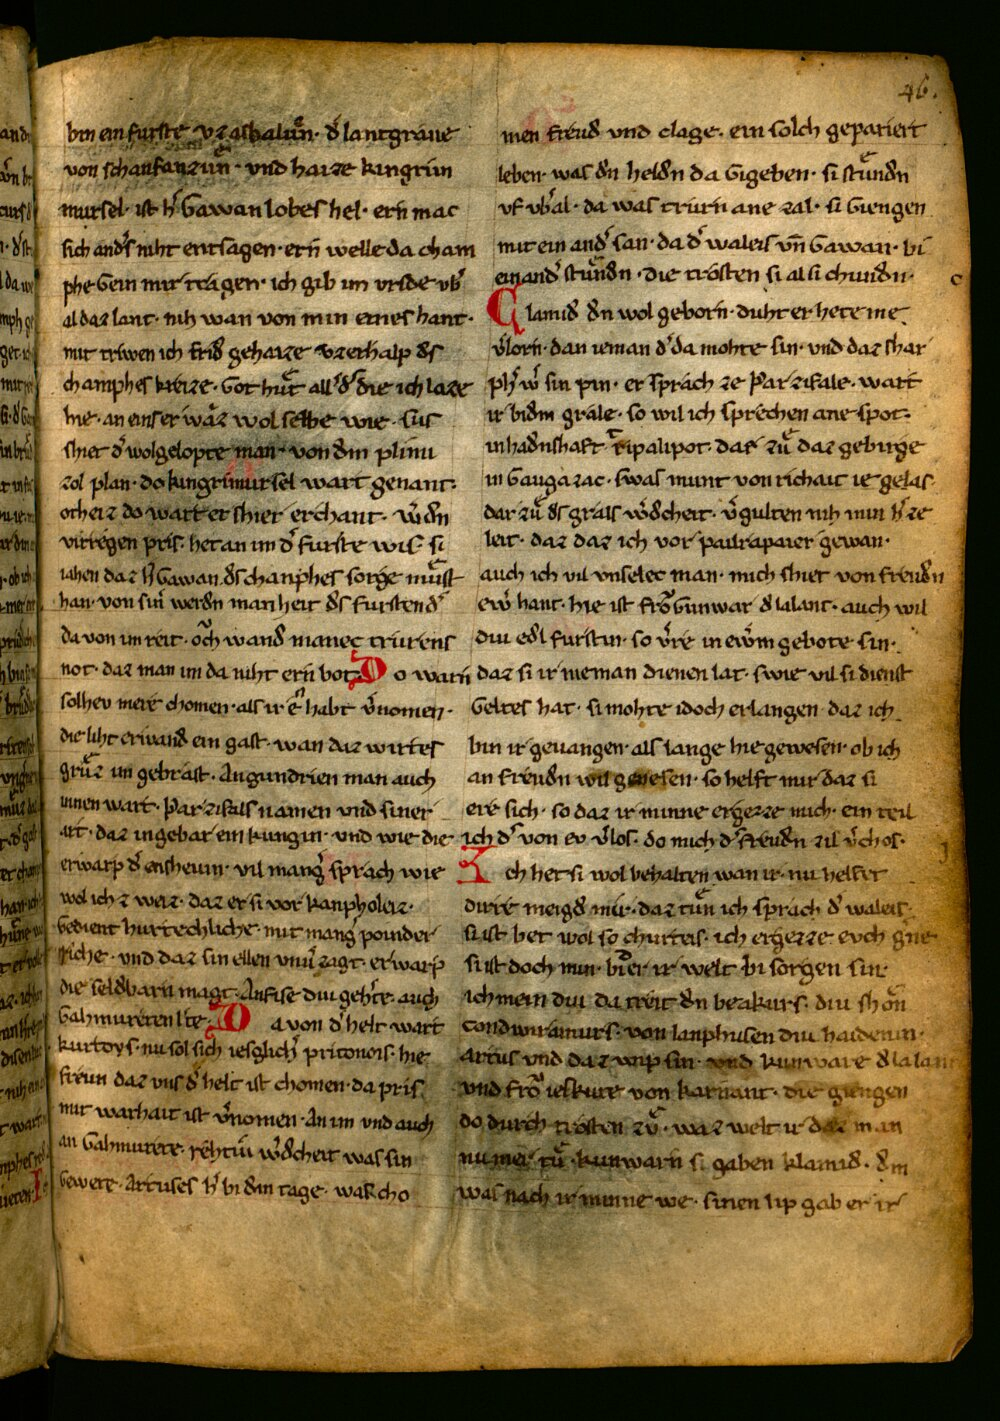 46.
bin ein furste vz ashalun͛. d͛ lantgraue
von schanfanzun͛. vnd haize kingrim
mursel. ist h͛ Gawan lobes hel. ern mac
sich and͛s niht entsagen. ern welle da cham
phe Gein mir tragen. ich gib im vride vb͛
al daz lant. nih wan von min eines hant.
mit triwen ich frid gehaize vzerhalp d͛s
champhes kreize. Got hut͛ all͛ d͛ die ich laze
hie. an einser waz͛ wol selbe wie. sus
shiet d͛ wolgelopte man. von d͛m plimi
zol plan. do kingrimursel wart genant.
ocheiz do wart er shier erchant. w͛dn
virregen pris. het an im d͛ furste wis. si
iahen daz h͛ Gawan d͛s chanphes sorge must͛
han. von sin͛ werdn manheit d͛s fursten d͛
da von im reit. och wand manec trurens
not. daz man im da niht ern bot. Do warn
solhev mere chomen. als ir e͛ habt v͛nomen.
die liht eriwand ein gast. wan daz wirtes
gruz͛ im gebrast. An gundrien man auch
innen wart. Parzifals namen vnd siner
art. daz in gebar ein kungin. vnd wie die
erwarp d͛ ensheuin. vil mang͛ sprach wie
wol ich z weiz. daz er si vor kanpholeiz.
Gedient hurtechliche. mit mang poinder
riche. vnd daz sin ellen vnu͛zagt. erwarp
die seldbarn magt. Anfise diu geh͛te. auch
Gahmureten l͛te. Da von d͛ helt wart
kurtoys. nu sol sich iesglich͛ pritonois. hie
freun daz vns d͛ helt ist chomen. da pris
mit warhait ist v͛nomen. An im vnd auch
an Gahmurete. rehtiu w͛dcheit was sin
Gewete. Artuses h͛ bi dem tage. was cho
men freud vnd clage. ein solch gepariert
leben. was d͛n heldn da Gigeben. si stundn͛
vf vb͛al. da was trurn ane zal. si Giengen
mit ein and͛ san. da d͛ waleis vn͛ Gawan. bi
einand͛ stundn͛. die trosten si al si chundn.
Clamid d͛n wol geborn. duht er hete me
v͛lorn. dan ieman d͛ da mohte sin. vnd daz shar
ph͛ w͛ sin pin. er sprach ze Parzifale. wart
ir bidm grale. so wil ich sprechen ane spot.
in hadnshaft tripalipot. dar zu͛ daz gebirge
in Gaugazac. swas munt von richait ie gelas
dar zu͛ d͛s grals w͛dcheit. v͛gulten nih min h͛ze
leit. daz daz ich vor pailrapaier gewan.
auch ich vil vnselec man. mich shiet von freudn
ew͛ hant. hie ist fro Gunwar d͛ lalant. auch wil
diu edl furstin. so v͛re in ew͛m gebote sin.
daz si ir nieman dienen lat. swie vil si dienst
Geltes hat. si mohte idoch erlangen daz ich
bin ir geuangen. als lange hie gewesen. ob ich
an freudn wil genesen. so helft mir daz si
ere sich. so daz ir minne ergezze mich. ein teil
ich d͛s von ev v͛los. do mich d͛s freudn zil v͛chos.
Ich het si wol behalten wan ir. nu helfet
dirre meigd mir. daz tun͛ ich sprach d͛ waleis.
si ist bet wol so churteis. ich ergezze evch gne
si ist doch min. bi der ir welt bi sorgen sin.
ich mein diu da treit d͛n beakurs. diu shon͛
condwiramurs. von lanphusen diu haidenin.
artus vnd daz wip sin. vnd kunware d͛ lalant
vnd fro ieskute von karnant. die giengen
do durch trosten zu͛. waz welt ir daz man
nu mer tu͛. kunwarn si gaben klamid. d͛m
was nach ir minne we. sinen lip gab er ir